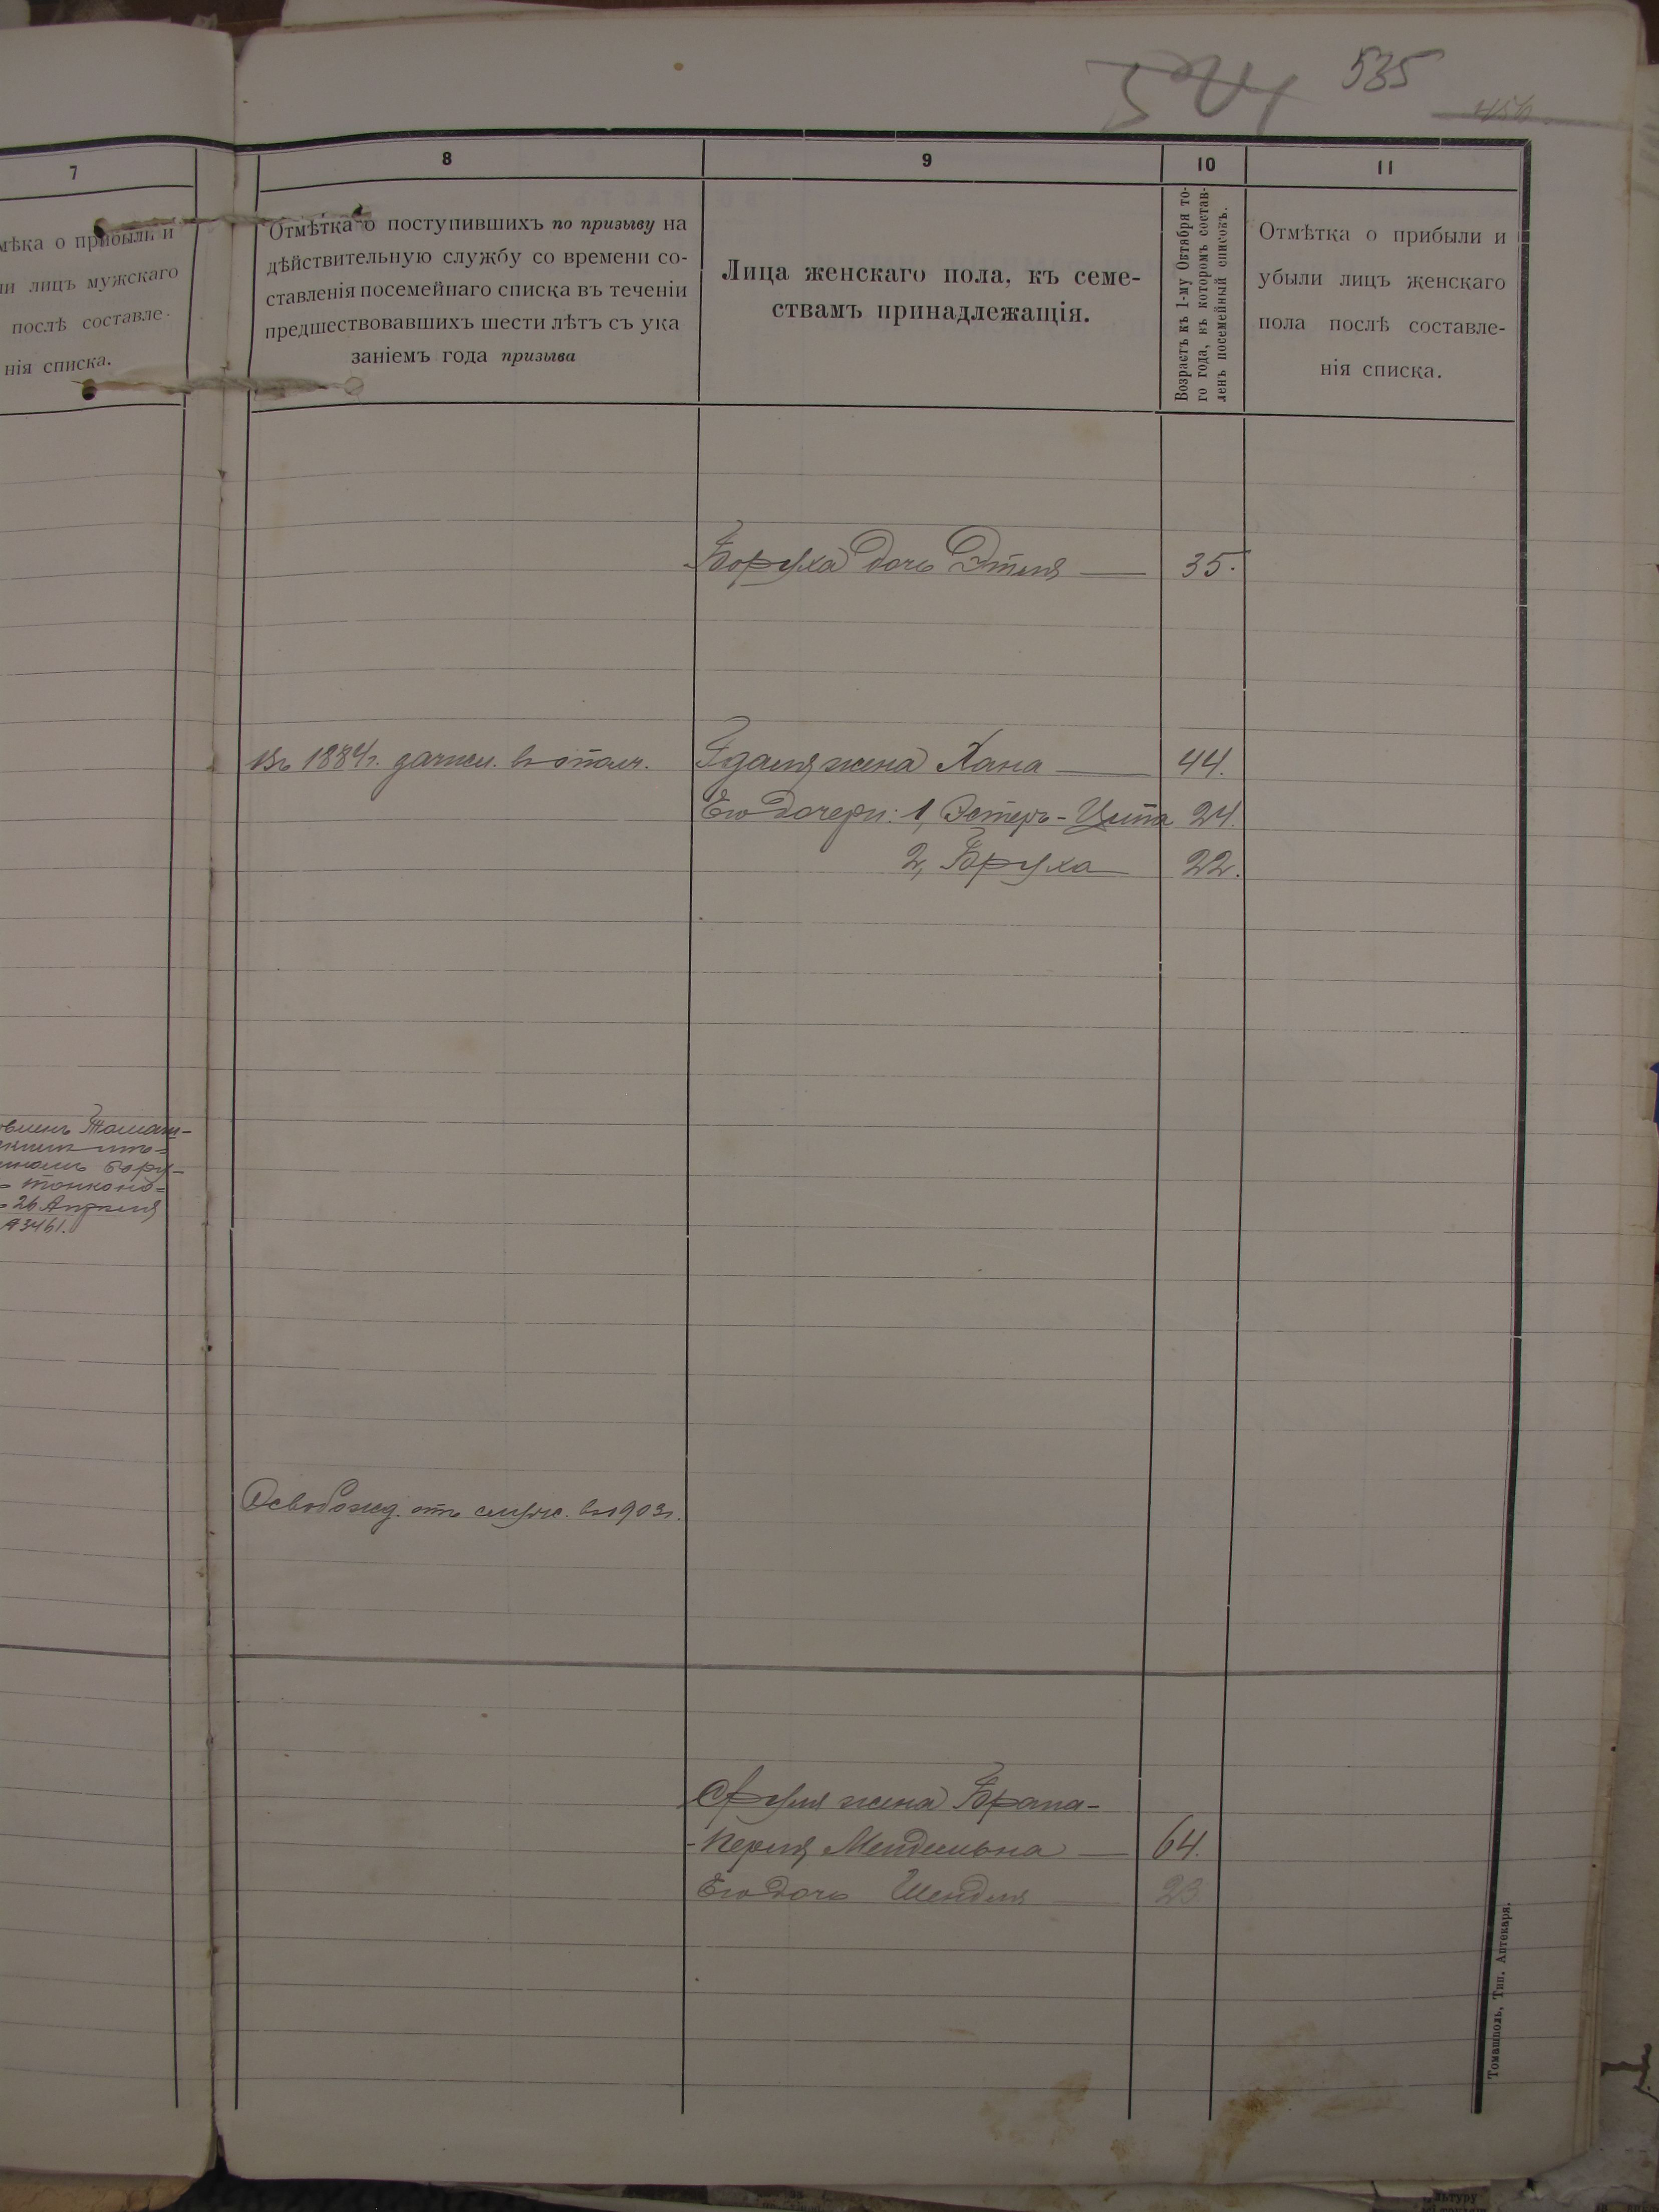 535
456
7
мѣка о прибыли и
ли лицъ мужскаго
послѣ составле-
нія списка.
8
Отмѣтка о поступившихъ по призыву на
дѣйствительную службу со времени со-
ставленія посемейнаго списка въ теченіи
предшествовавшихъ шести лѣтъ съ ука
заніемъ года призыва
9
Лица женскаго пола, къ семе-
ствамъ принадлежащія.
10
Возрастъ къ 1-му Октября то-
го года, къ которомъ состав-
ленъ посемейный списокъ.
11
Отмѣтка о прибыли и
убыли лицъ женскаго
пола послѣ составле-
нія списка.
Боруха дочь Этля 35.
Въ 1884г. зачисл. в ополч.
Гдаля жена Хана 44.
Его дочери: 1, Эстеръ-Цита 24.
2, Бруха 22.
Томаш-
бору-
26 Апреля
3461.
Освобожд. отъ служ. в 1903г.
Сруля жена Брана-
-Перля Мендельна 64.
Его дочь Шендля 23
Томашполь, Тип. Аптекаря.